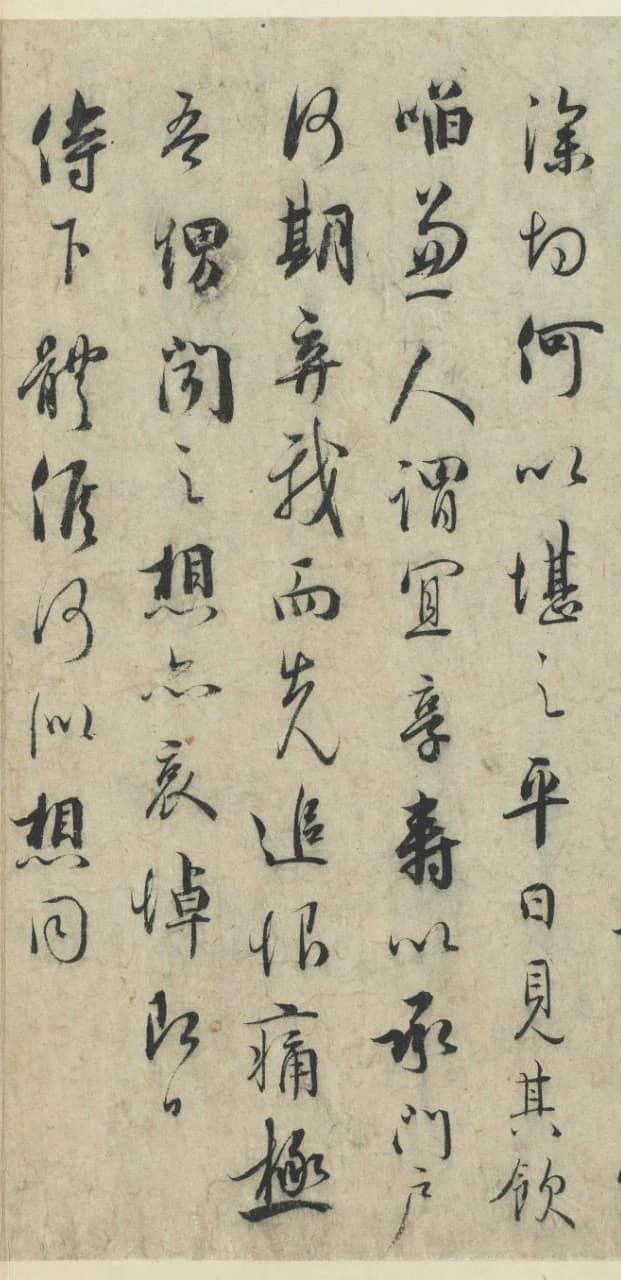 深切何以堪之平日見其飲
啗兼人謂宜享壽以承門戶
何期弃我而先追恨痛極
吾甥聞之想亦哀悼即日
侍下體候何似想同